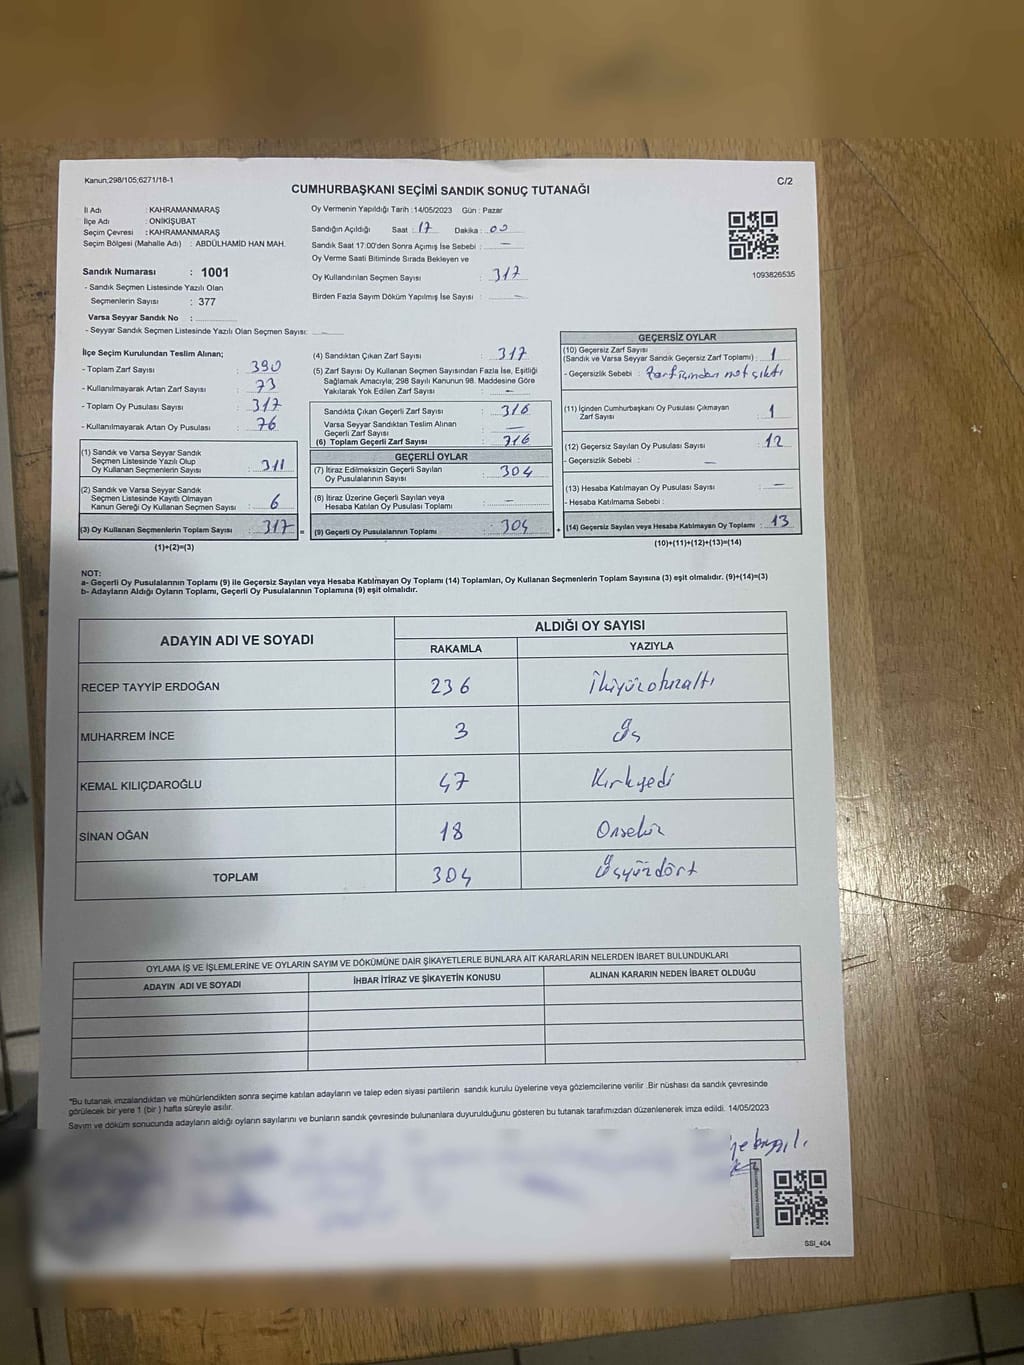 Kanun;298/105;6271/18-1
C/2
CUMHURBAŞKANI SEÇİMİ SANDIK SONUÇ TUTANAĞI
İl Adı : KAHRAMANMARAŞ
İlçe Adı : ONİKİŞUBAT
Seçim Çevresi : KAHRAMANMARAŞ
Seçim Bölgesi (Mahalle Adı) : ABDÜLHAMİD HAN MAH.
Sandık Numarası : 1001
- Sandık Seçmen Listesinde Yazılı Olan
Seçmenlerin Sayısı : 377
Varsa Seyyar Sandık No :
- Seyyar Sandık Seçmen Listesinde Yazılı Olan Seçmen Sayısı: —
Oy Vermenin Yapıldığı Tarih :14/05/2023 Gün : Pazar
Sandığın Açıldığı Saat : 17 Dakika : 00
Sandık Saat 17:00'den Sonra Açımış İse Sebebi : —
Oy Verme Saati Bitiminde Sırada Bekleyen ve
Oy Kullandırılan Seçmen Sayısı : 317
Birden Fazla Sayım Döküm Yapılmış İse Sayısı : —
1093826535
İlçe Seçim Kurulundan Teslim Alınan;
- Toplam Zarf Sayısı : 390
- Kullanılmayarak Artan Zarf Sayısı : 73
- Toplam Oy Pusulası Sayısı : 317
- Kullanılmayarak Artan Oy Pusulası : 76
(1) Sandık ve Varsa Seyyar Sandık
Seçmen Listesinde Yazılı Olup
Oy Kullanan Seçmenlerin Sayısı : 311
(2) Sandık ve Varsa Seyyar Sandık
Seçmen Listesinde Kayıtlı Olmayan
Kanun Gereği Oy Kullanan Seçmen Sayısı : 6
(3) Oy Kullanan Seçmenlerin Toplam Sayısı : 317 =
(1)+(2)=(3)
(4) Sandıktan Çıkan Zarf Sayısı : 317
(5) Zarf Sayısı Oy Kullanan Seçmen Sayısından Fazla İse, Eşitliği
Sağlamak Amacıyla; 298 Sayılı Kanunun 98. Maddesine Göre
Yakılarak Yok Edilen Zarf Sayısı : —
Sandıkta Çıkan Geçerli Zarf Sayısı : 316
Varsa Seyyar Sandıktan Teslim Alınan
Geçerli Zarf Sayısı : —
(6) Toplam Geçerli Zarf Sayısı : 316
GEÇERLİ OYLAR
(7) İtiraz Edilmeksizin Geçerli Sayılan
Oy Pusulalarının Sayısı : 304
(8) İtiraz Üzerine Geçerli Sayılan veya
Hesaba Katılan Oy Pusulası Toplamı : —
(9) Geçerli Oy Pusulalarının Toplamı : 304 +
GEÇERSİZ OYLAR
(10) Geçersiz Zarf Sayısı
(Sandık ve Varsa Seyyar Sandık Geçersiz Zarf Toplamı) : 1
- Geçersizlik Sebebi : Zarf içinden not çıktı
(11) İçinden Cumhurbaşkanı Oy Pusulası Çıkmayan
Zarf Sayısı : 1
(12) Geçersiz Sayılan Oy Pusulası Sayısı : 12
- Geçersizlik Sebebi : —
(13) Hesaba Katılmayan Oy Pusulası Sayısı : —
- Hesaba Katılmama Sebebi :
(14) Geçersiz Sayılan veya Hesaba Katılmayan Oy Toplamı : 13
(10)+(11)+(12)+(13)=(14)
NOT:
a- Geçerli Oy Pusulalarının Toplamı (9) ile Geçersiz Sayılan veya Hesaba Katılmayan Oy Toplamı (14) Toplamları, Oy Kullanan Seçmenlerin Toplam Sayısına (3) eşit olmalıdır. (9)+(14)=(3)
b- Adayların Aldığı Oyların Toplamı, Geçerli Oy Pusulalarının Toplamına (9) eşit olmalıdır.
ADAYIN ADI VE SOYADI
ALDIĞI OY SAYISI
RAKAMLA YAZIYLA
RECEP TAYYİP ERDOĞAN 236 İkiyüzotuzaltı
MUHARREM İNCE 3 Üç
KEMAL KILIÇDAROĞLU 47 Kırkyedi
SİNAN OĞAN 18 Onsekiz
TOPLAM 304 Üçyüzdört
OYLAMA İŞ VE İŞLEMLERİNE VE OYLARIN SAYIM VE DÖKÜMÜNE DAİR ŞİKAYETLERLE BUNLARA AİT KARARLARIN NELERDEN İBARET BULUNDUKLARI
ADAYIN ADI VE SOYADI İHBAR İTİRAZ VE ŞİKAYETİN KONUSU ALINAN KARARIN NEDEN İBARET OLDUĞU
*Bu tutanak imzalandıktan ve mühürlendikten sonra seçime katılan adayların ve talep eden siyasi partilerin sandık kurulu üyelerine veya gözlemcilerine verilir .Bir nüshası da sandık çevresinde
görülecek bir yere 1 (bir ) hafta süreyle asılır.
Sayım ve döküm sonucunda adayların aldığı oyların sayılarını ve bunların sandık çevresinde bulunanlara duyurulduğunu gösteren bu tutanak tarafımızdan düzenlenerek imza edildi. 14/05/2023
SSİ_404